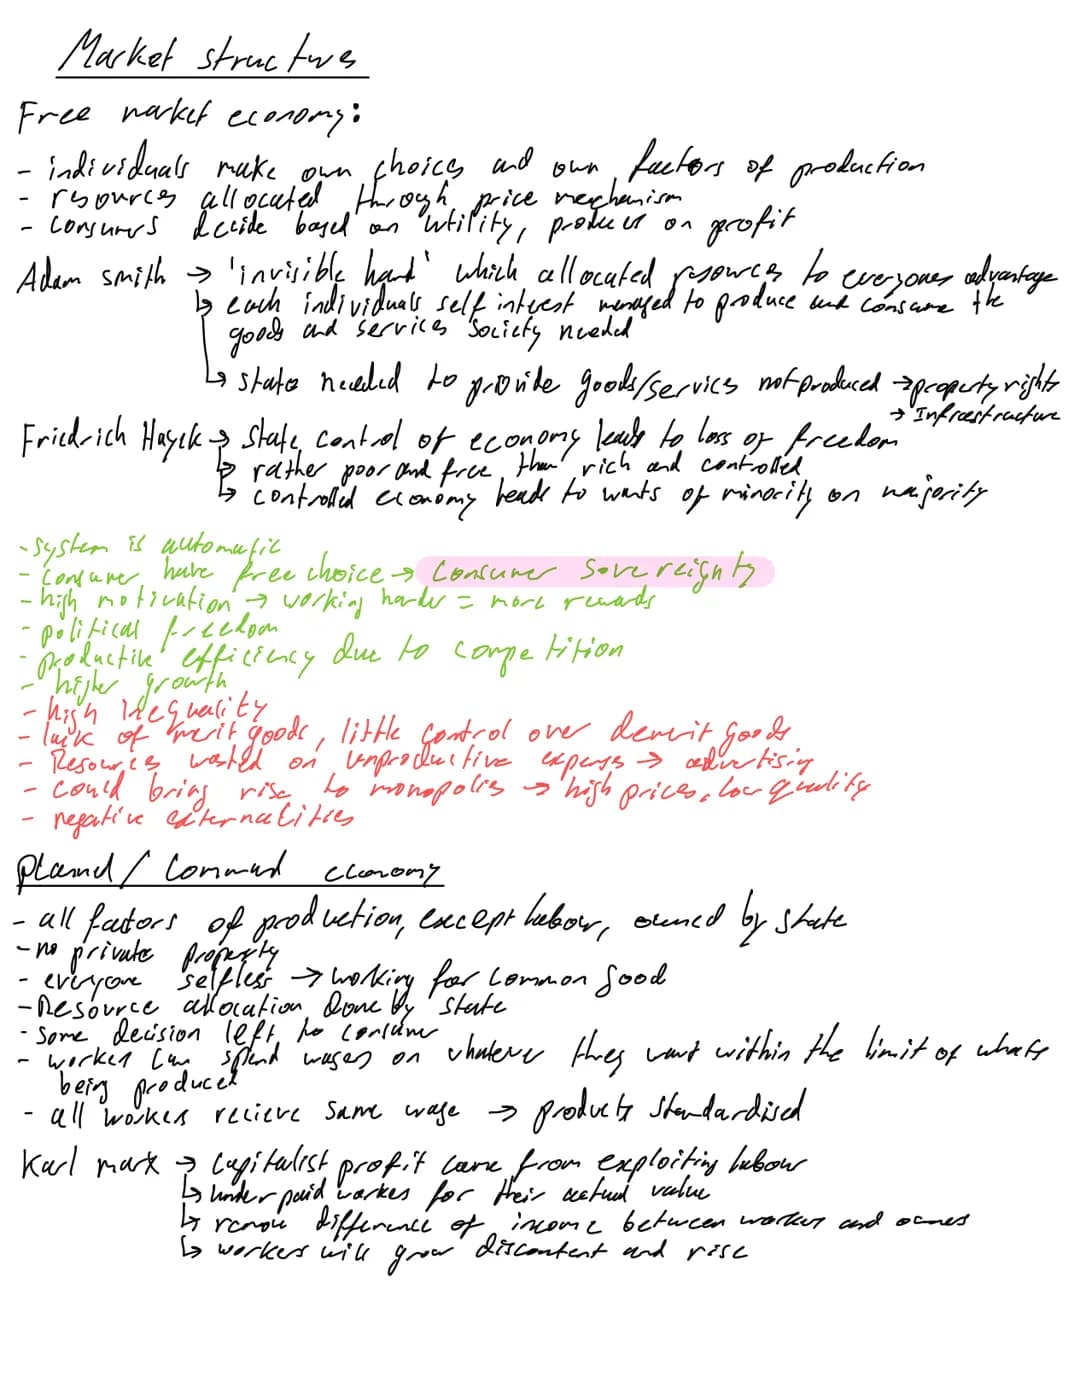 Market structures
Free market economy:
- individuals make own choices and own factors of production
- resources allocated through price mechanism
- consumers decide based on utility, producers on profit
Adam smith → 'invisible hand' which allocated resources to everyones advantage
↳ each individuals self interest managed to produce and consume the
goods and services society needed
↳ state needed to provide goods/services not produced → property rights
→ Infrastructure
Friedrich Hayek → State control of economy leads to loss of freedom
↳ rather poor and free than rich and controlled
↳ controlled economy leads to wants of minority on majority
- System is automatic
- consumer have free choice → Consumer Sovereignty
- high motivation → working harder = more rewards
- political freedom
- productive efficiency due to competition
- higher growth
- high inequality
- lack of merit goods, little control over demerit goods
- Resources wasted on unproductive expenses → advertising
- could bring rise to monopolies → high prices, low quality
- negative externalities
Planned / Command economy
- all factors of production, except labour, owned by state
- no private property
- everyone selfless → working for common good
- Resource allocation done by state
- Some decision left to consumer
- worker can spend wages on whatever they want within the limit of whats
being produced
- all workers recieve same wage → products standardised
Karl marx → Capitalist profit came from exploiting labour
↳ under paid workers for their actual value
↳ remove difference of income between workers and owners
↳ workers will grow discontent and rise